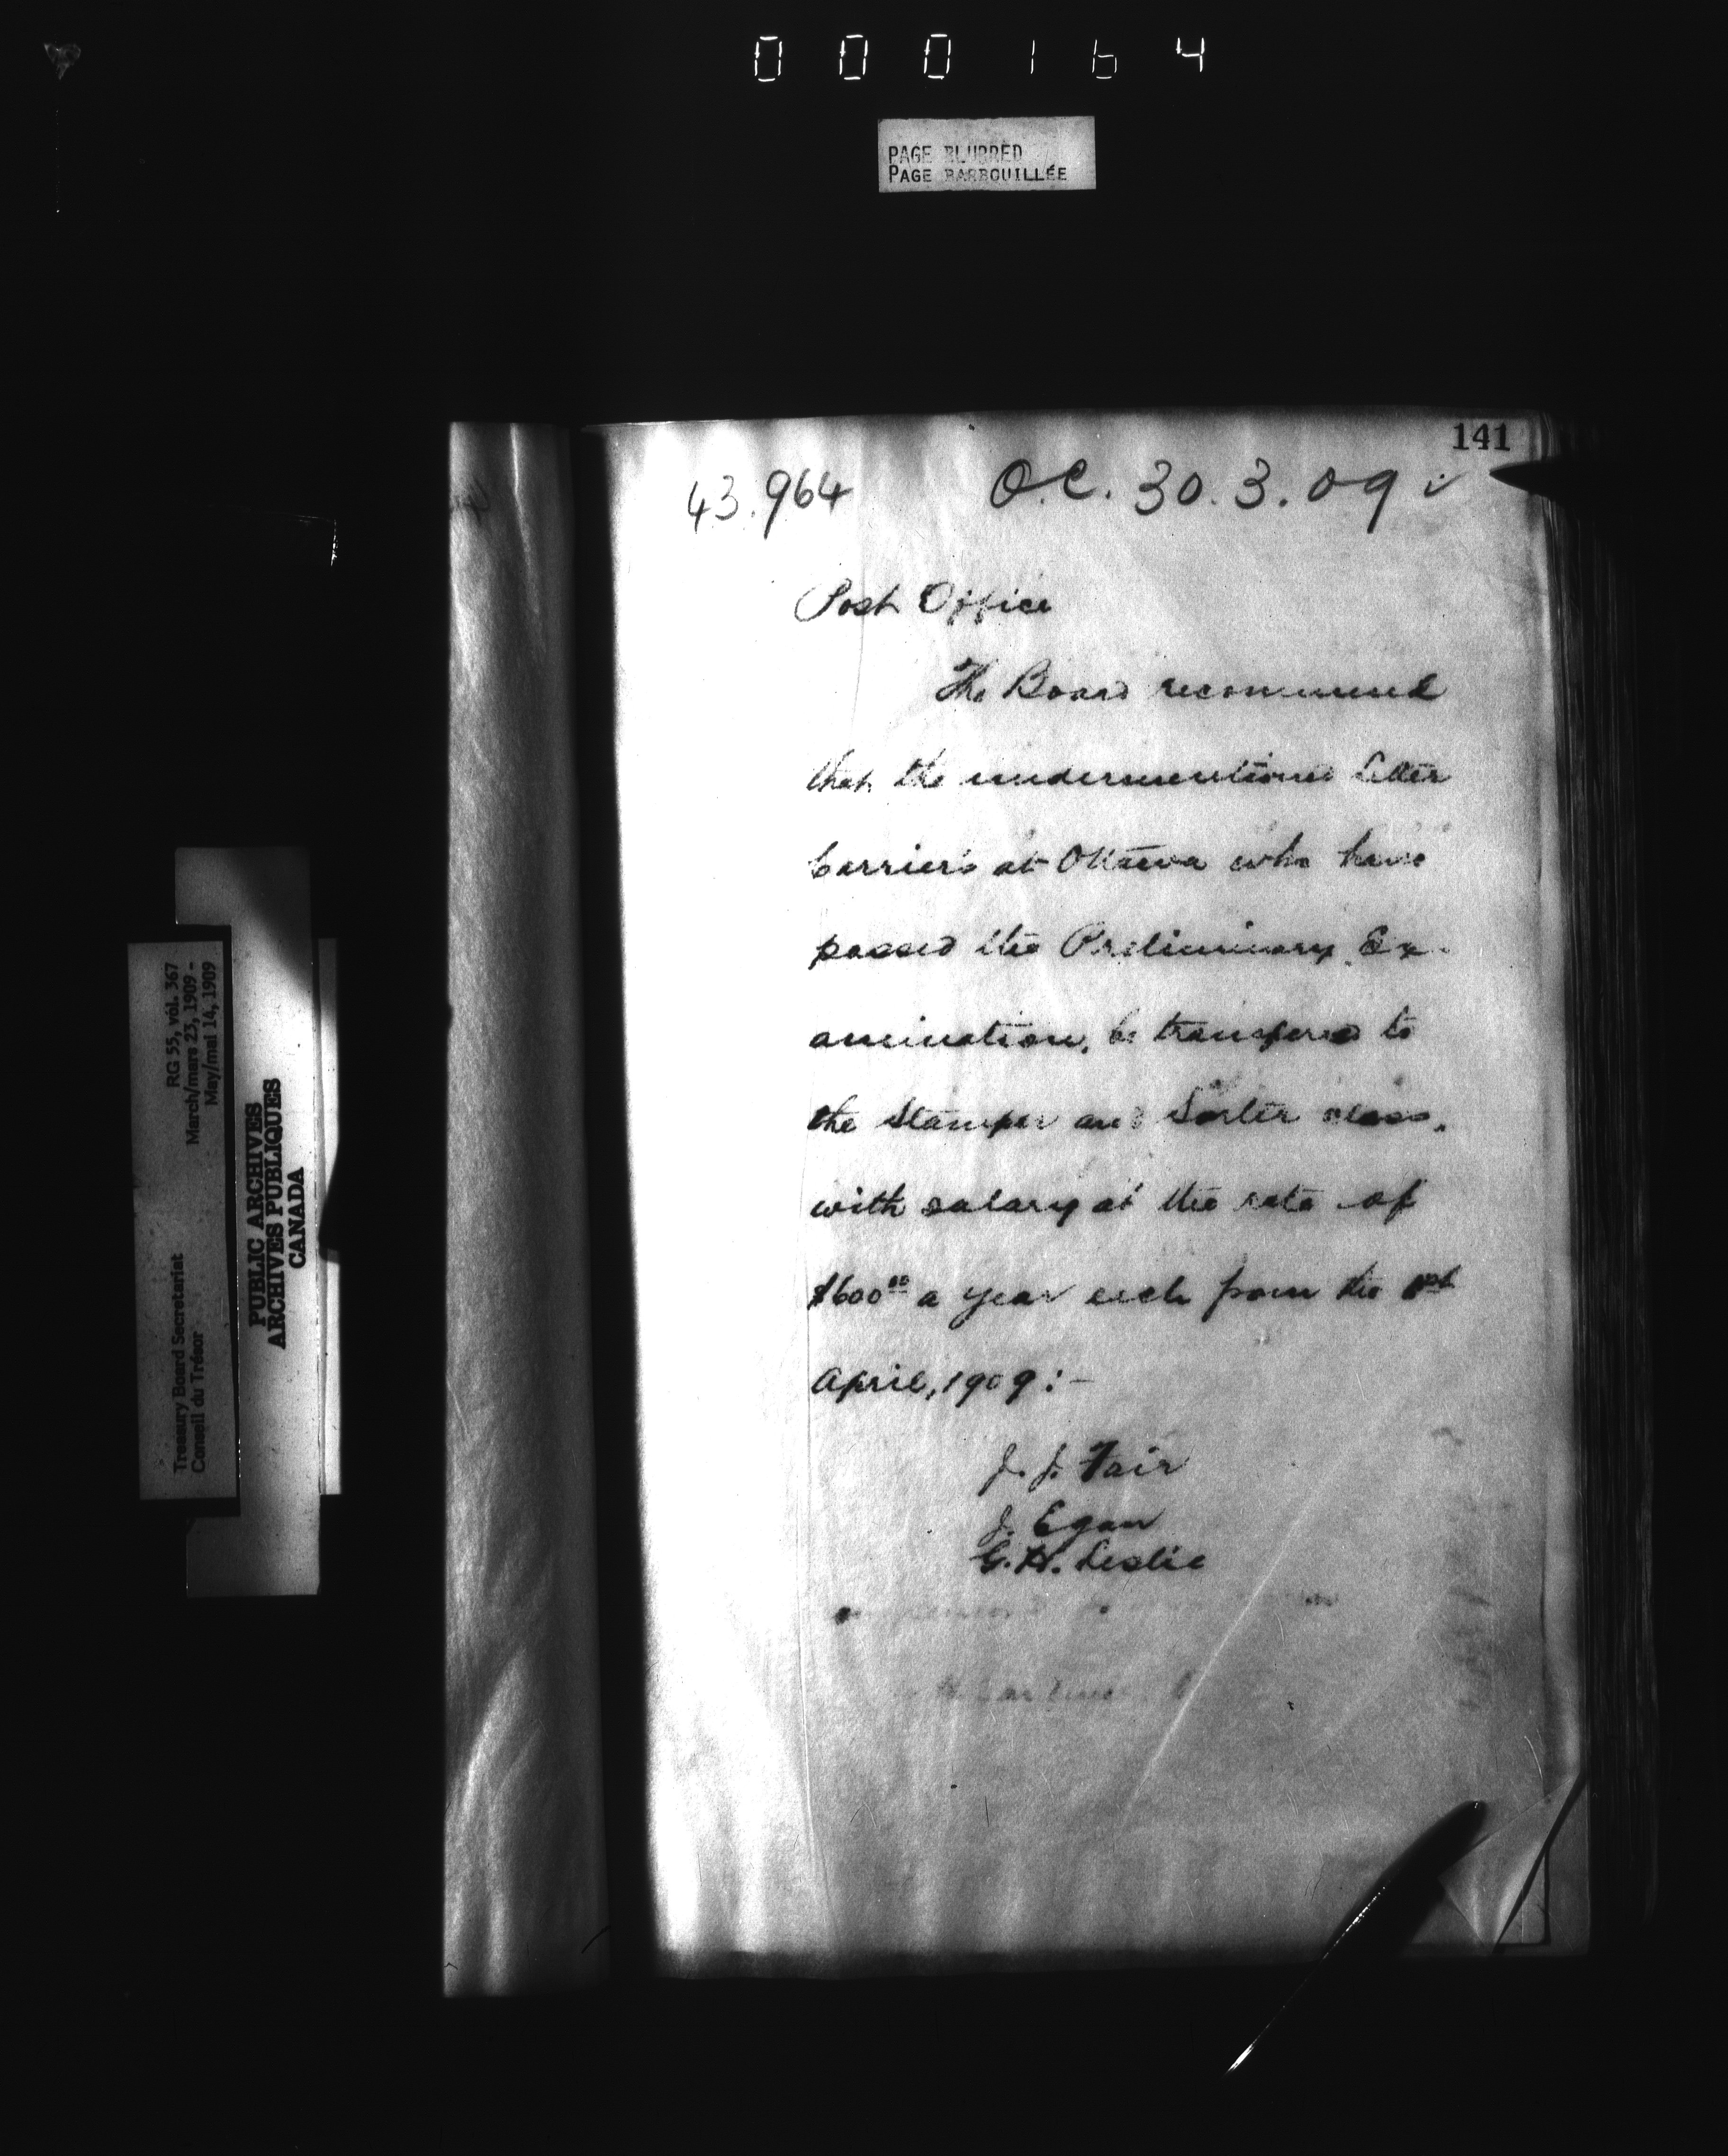 000164
PAGE BLURRED
PAGE BARBOUILLÉE
141
43.964 O.C. 30.3.09
Post Office
The Board recommend
that the undermentioned Letter
Carriers at Ottawa who have
passed the Preliminary Ex-
amination, be transferred to
the Stamper and Sorter class,
with salary at the rate of
$600.00 a year each from the 1st
April, 1909:-
J. J. Fair
J. Egan
G. H. Leslie
RG 55, vol. 367
March/mars 23, 1909 -
May/mai 14, 1909
Treasury Board Secretariat
Conseil du Trésor
PUBLIC ARCHIVES
ARCHIVES PUBLIQUES
CANADA